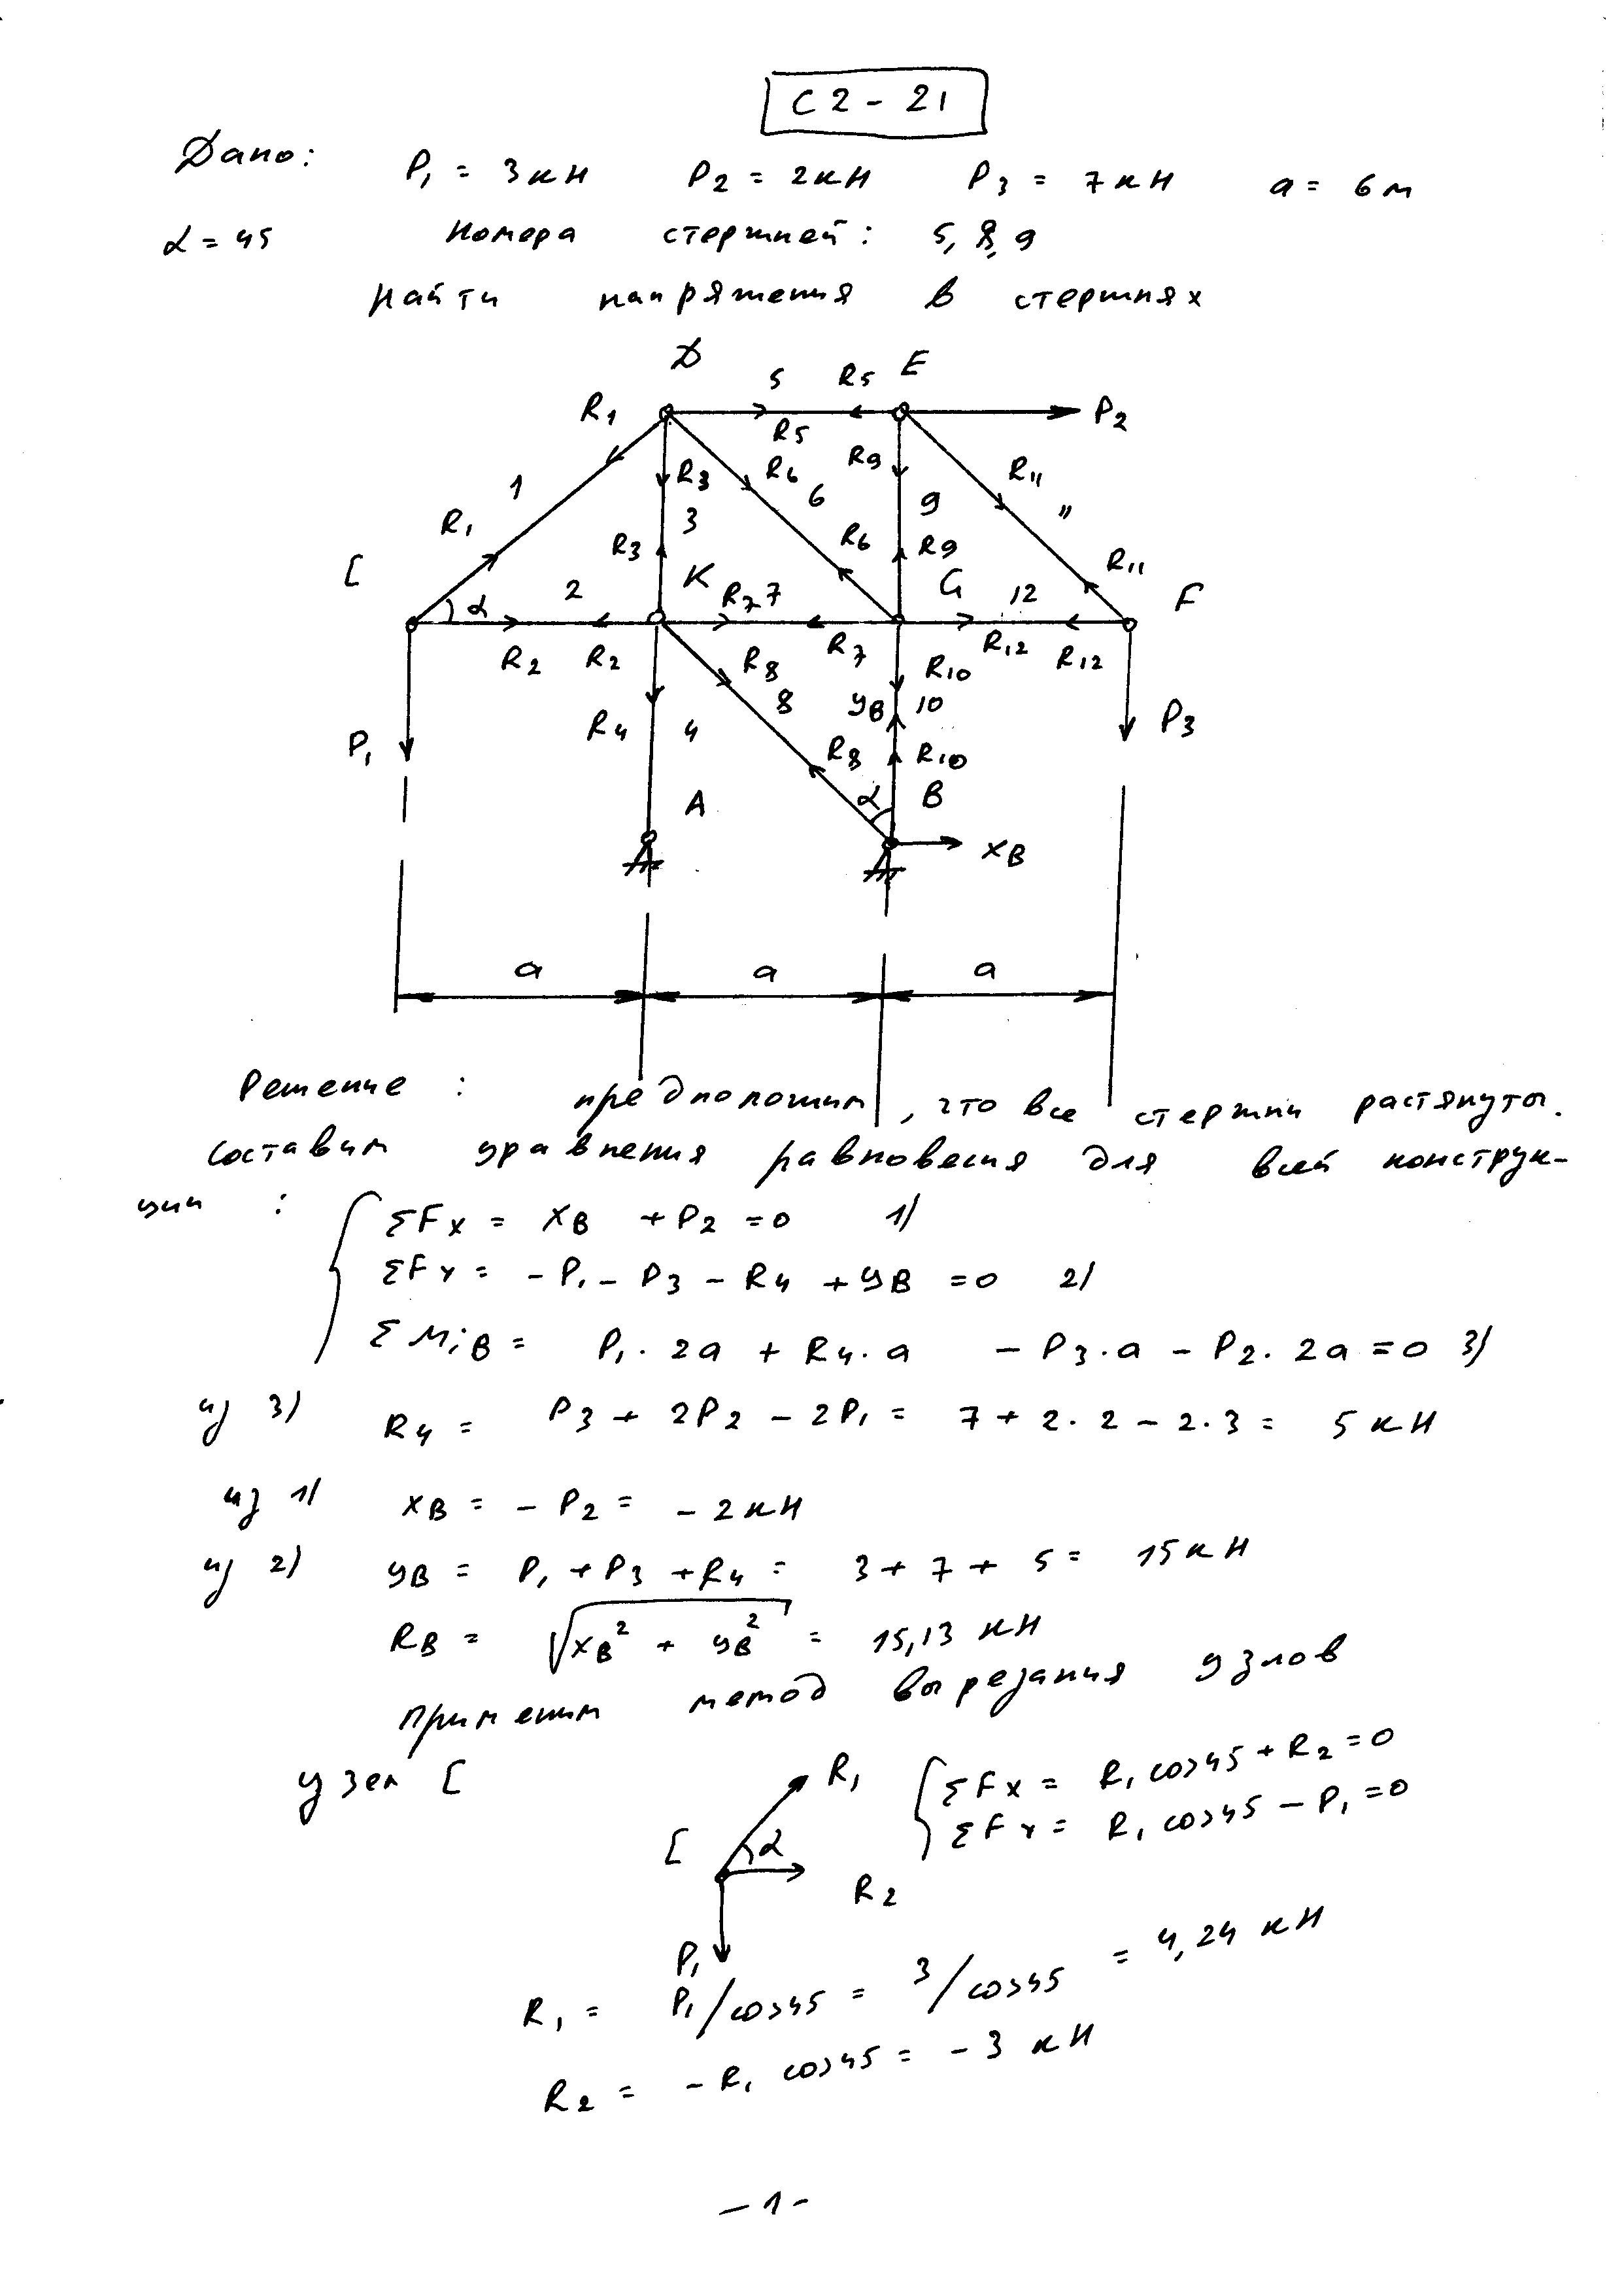 С2-21
Дано: P1 = 3кН P2 = 2кН P3 = 7кН a = 6м
α = 45 Номера стержней: 5, 8, 9
Найти напряжения в стержнях
D E
R1 5 R5 P2
R5
R3 R6 6 R9 R11
1 3 9 11
R1 R3 R6 R9 R11
C α 2 K R7 7 G 12 F
R2 R2 R7 R12 R12
R8 R10
P1 R4 4 8 yB 10 P3
R8 R10
A α B
xB
a a a
Решение: предположим, что все стержни растянуты.
Составим уравнения равновесия для всей конструк-
ции:
ΣFx = XB + P2 = 0 1)
ΣFY = -P1 - P3 - R4 + yB = 0 2)
ΣMiB = P1·2a + R4·a - P3·a - P2·2a = 0 3)
из 3) R4 = P3 + 2P2 - 2P1 = 7 + 2·2 - 2·3 = 5 кН
из 1) XB = -P2 = -2кН
из 2) yB = P1 + P3 + R4 = 3 + 7 + 5 = 15кН
RB = √xB² + yB² = 15,13 кН
Применим метод вырезания узлов
узел C
R1 ΣFx = R1 cos45 + R2 = 0
C α ΣFY = R1 cos45 - P1 = 0
R2
P1
R1 = P1/cos45 = 3/cos45 = 4,24 кН
R2 = -R1 cos45 = -3 кН
-1-